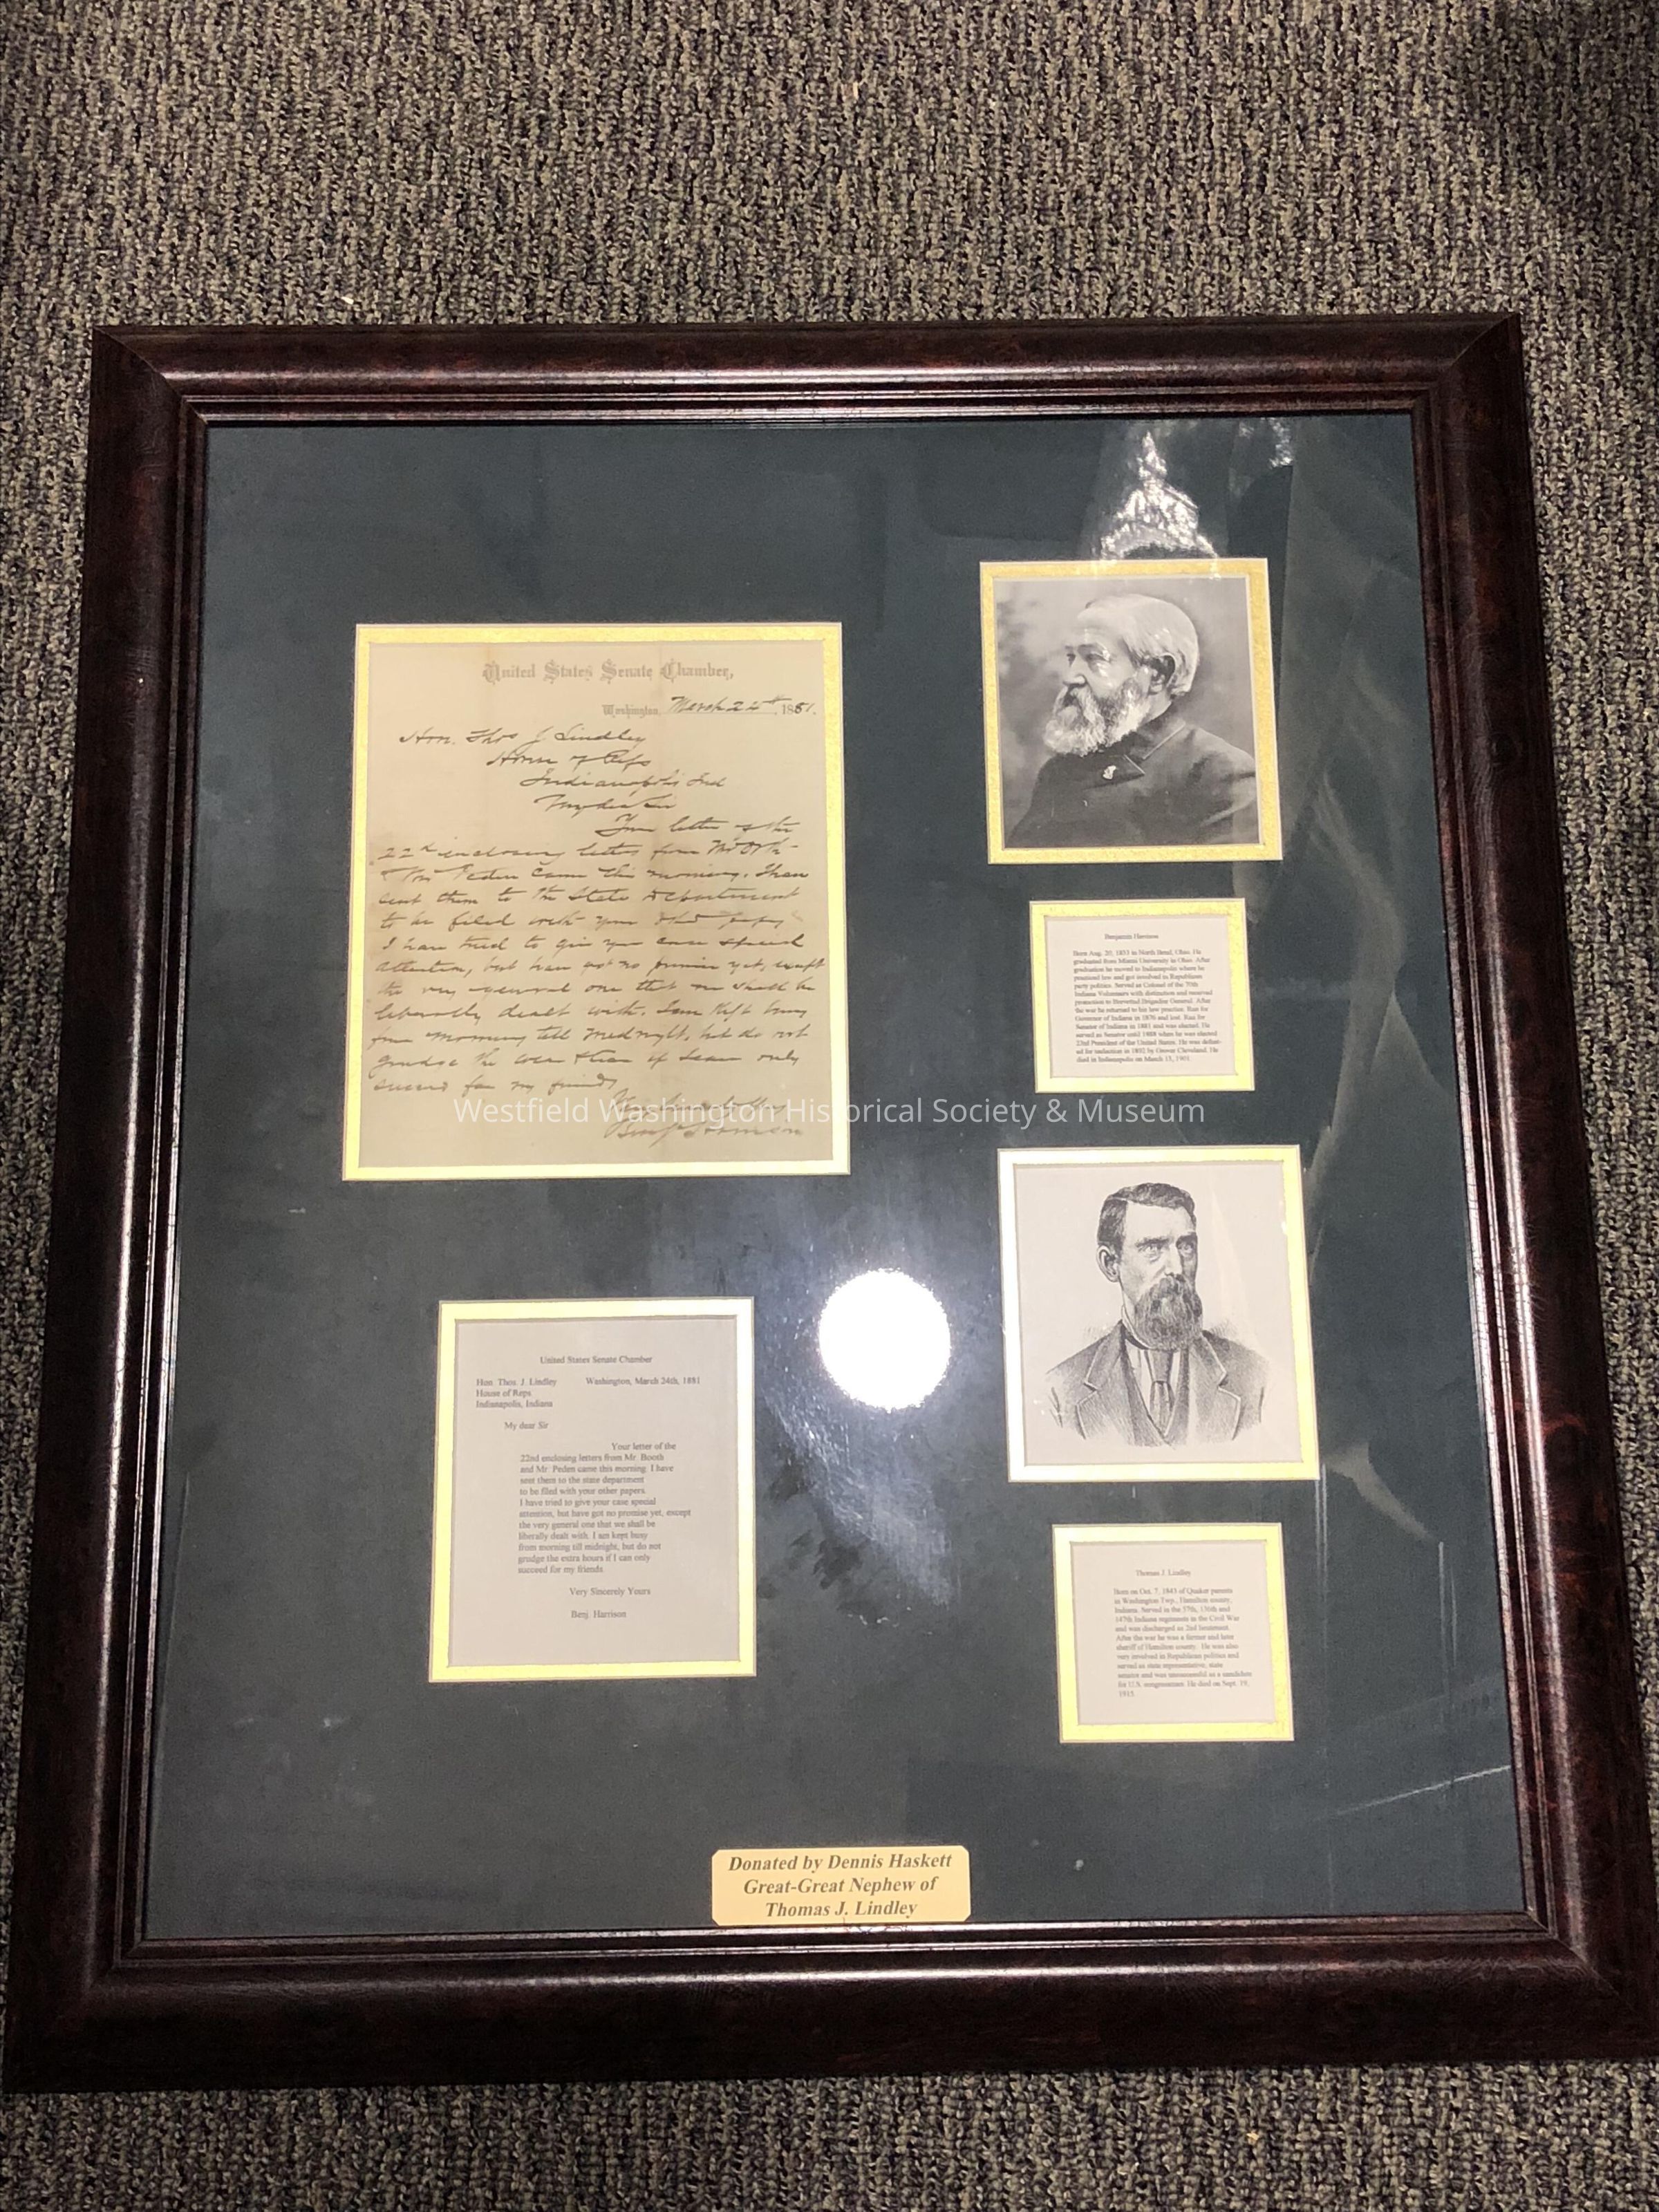 United States Senate Chamber,
Washington, March 24th, 1881.
Hon. Thos J. Lindley
House of Reps
Indianapolis Ind
My dear Sir
Your letter of the
22d enclosing letters from Mr
& Mr Peden came this morning. I have
sent them to the State department
to be filed with your other papers
I have tried to give your case special
attention, but have got no promise yet, except
the very general one that we shall be
liberally dealt with. I am kept busy
from morning till midnight, but do not
grudge the extra hours if I can only
succeed for my friends
Benj Harrison
United States Senate Chamber
Hon. Thos. J. Lindley Washington, March 24th, 1881
House of Reps
Indianapolis, Indiana
My dear Sir
Your letter of the
22nd enclosing letters from Mr. Booth
and Mr. Peden came this morning. I have
sent them to the state department
to be filed with your other papers.
I have tried to give your case special
attention, but have got no promise yet, except
the very general one that we shall be
liberally dealt with. I am kept busy
from morning till midnight, but do not
grudge the extra hours if I can only
succeed for my friends
Very Sincerely Yours
Benj. Harrison
Benjamin Harrison
Born Aug. 20, 1833 in North Bend, Ohio. He
graduated from Miami University in Ohio. After
graduation he moved to Indianapolis where he
practiced law and got involved in Republican
party politics. Served as Colonel of the 70th
Indiana Volunteers with distinction and received
promotion to Brevetted Brigadier General. After
the war he returned to his law practice. Ran for
Governor of Indiana in 1876 and lost. Ran for
Senator of Indiana in 1881 and was elected. He
served as Senator until 1988 when he was elected
23rd President of the United States. He was defeat-
ed for reelection in 1892 by Grover Cleveland. He
died in Indianapolis on March 13, 1901.
Thomas J. Lindley
Born on Oct. 7, 1843 of Quaker parents
in Washington Twp., Hamilton county,
Indiana. Served in the 57th, 136th and
147th Indiana regiments in the Civil War
and was discharged as 2nd lieutenant.
After the war he was a farmer and later
sheriff of Hamilton county. He was also
very involved in Republican politics and
served as state representative, state
senator and was unsuccessful as a candidate
for U.S. congressman. He died on Sept. 19,
1915.
Donated by Dennis Haskett
Great-Great Nephew of
Thomas J. Lindley
Westfield Washington Historical Society & Museum